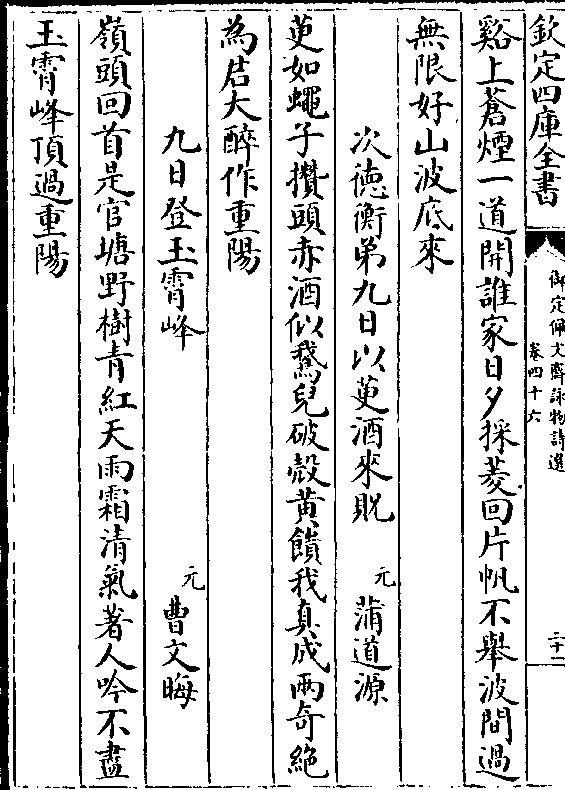 欽定四庫全書
御定佩文齋詠物詩選
卷四十六
二十一
谿上蒼煙一道開誰家日夕採菱回片帆不舉波間過
無限好山波底來
次徳衡弟九日以萸酒來貺
元
蒲道源
萸如蠅子攢頭赤酒似鵞兒破殻黄饋我真成兩奇絶
為君大醉作重陽
九日登玉霄峰
元
曹文晦
嶺頭回首是官塘野樹青紅天雨霜清氣著人吟不盡
玉霄峰頂過重陽